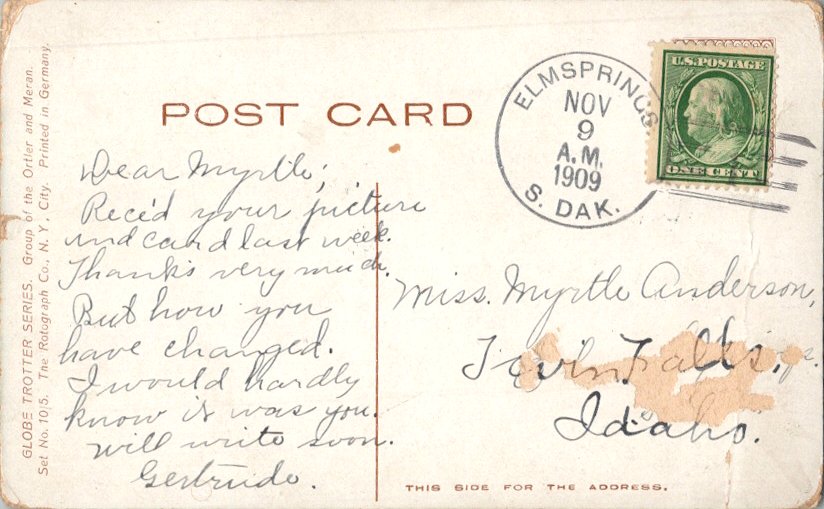 GLOBE TROTTER SERIES. Group of the Ortler and Meran.
Set No. 10|5. The Rotograph Co., N. Y. City. Printed in Germany.
POST CARD
ELMSPRINGS.
NOV
9
A.M.
1909
S. DAK.
U.S. POSTAGE
ONE CENT
Dear Myrtle;
Rece'd your picture
and card last week.
Thanks very much.
But how you
have changed.
I would hardly
know it was you.
Will write soon.
Gertrude.
Miss. Myrtle Anderson,
Twin Falls,
Idaho.
THIS SIDE FOR THE ADDRESS.